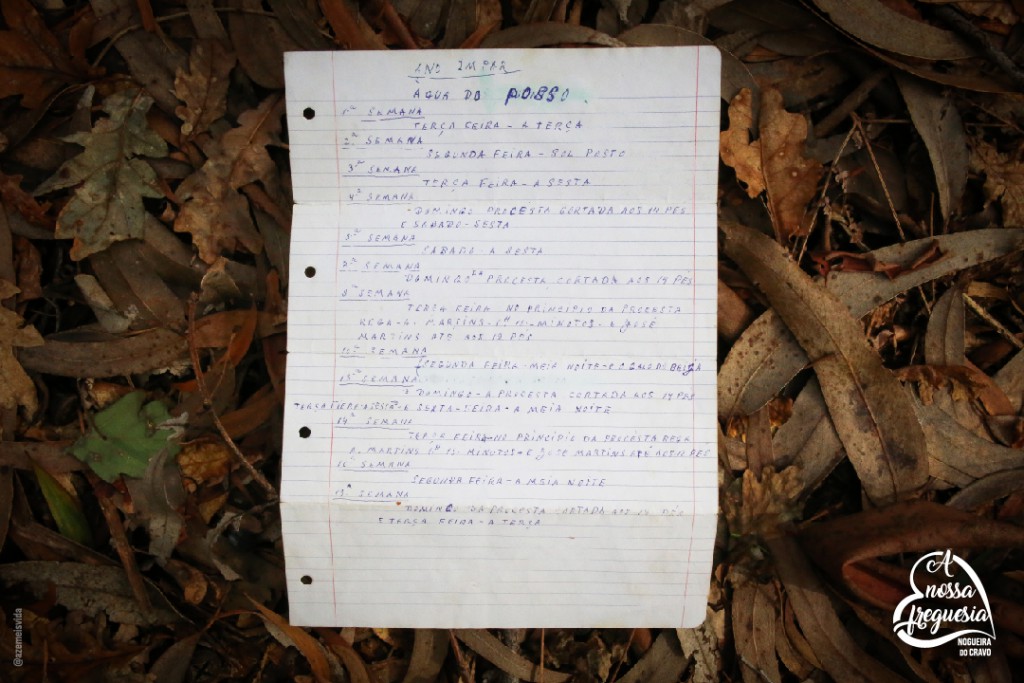 ANO IMPAR
ÁGUA DO POISO.
1ª SEMANA
TERÇA FEIRA - A TERÇA
2ª SEMANA
SEGUNDA FEIRA - SOL POSTO
3ª SEMANA
TERÇA FEIRA - A SESTA
4ª SEMANA
DOMINGO PROCESTA CORTADA AOS 14 PES
E SABADO - SESTA
5ª SEMANA
SABADO - A SESTA
7ª SEMANA
DOMINGO PROCESTA CORTADA AOS 14 PES
8ª SEMANA
TERÇA FEIRA NO PRINCIPIO DA PROCESTA
REGA - A. MARTINS - 15 - MINUTOS - E JOSÉ
MARTINS ATÉ AOS PES
11ª SEMANA
SEGUNDA FEIRA - MEIA NOITE - E O GALO DO BEIÇA
13ª SEMANA
DOMINGO - A PROCESTA CORTADA AOS 14 PES
TERÇA FEIRA A SESTA - E SESTA - FEIRA - A MEIA NOITE
14ª SEMANA
TERÇA FEIRA NO PRINCIPIO DA PROCESTA REGA
A. MARTINS 15 - MINUTOS - E JOSE MARTINS ATÉ AOS PES
16 SEMANA
SEGUNDA FEIRA - A MEIA NOITE
SEMANA
DOMINGO DA PROCESTA CORTADA AOS 14 PES
E TERÇA FEIRA - A TERÇA
@azemeisvida
A nossa freguesia
NOGUEIRA
DO CRAVO